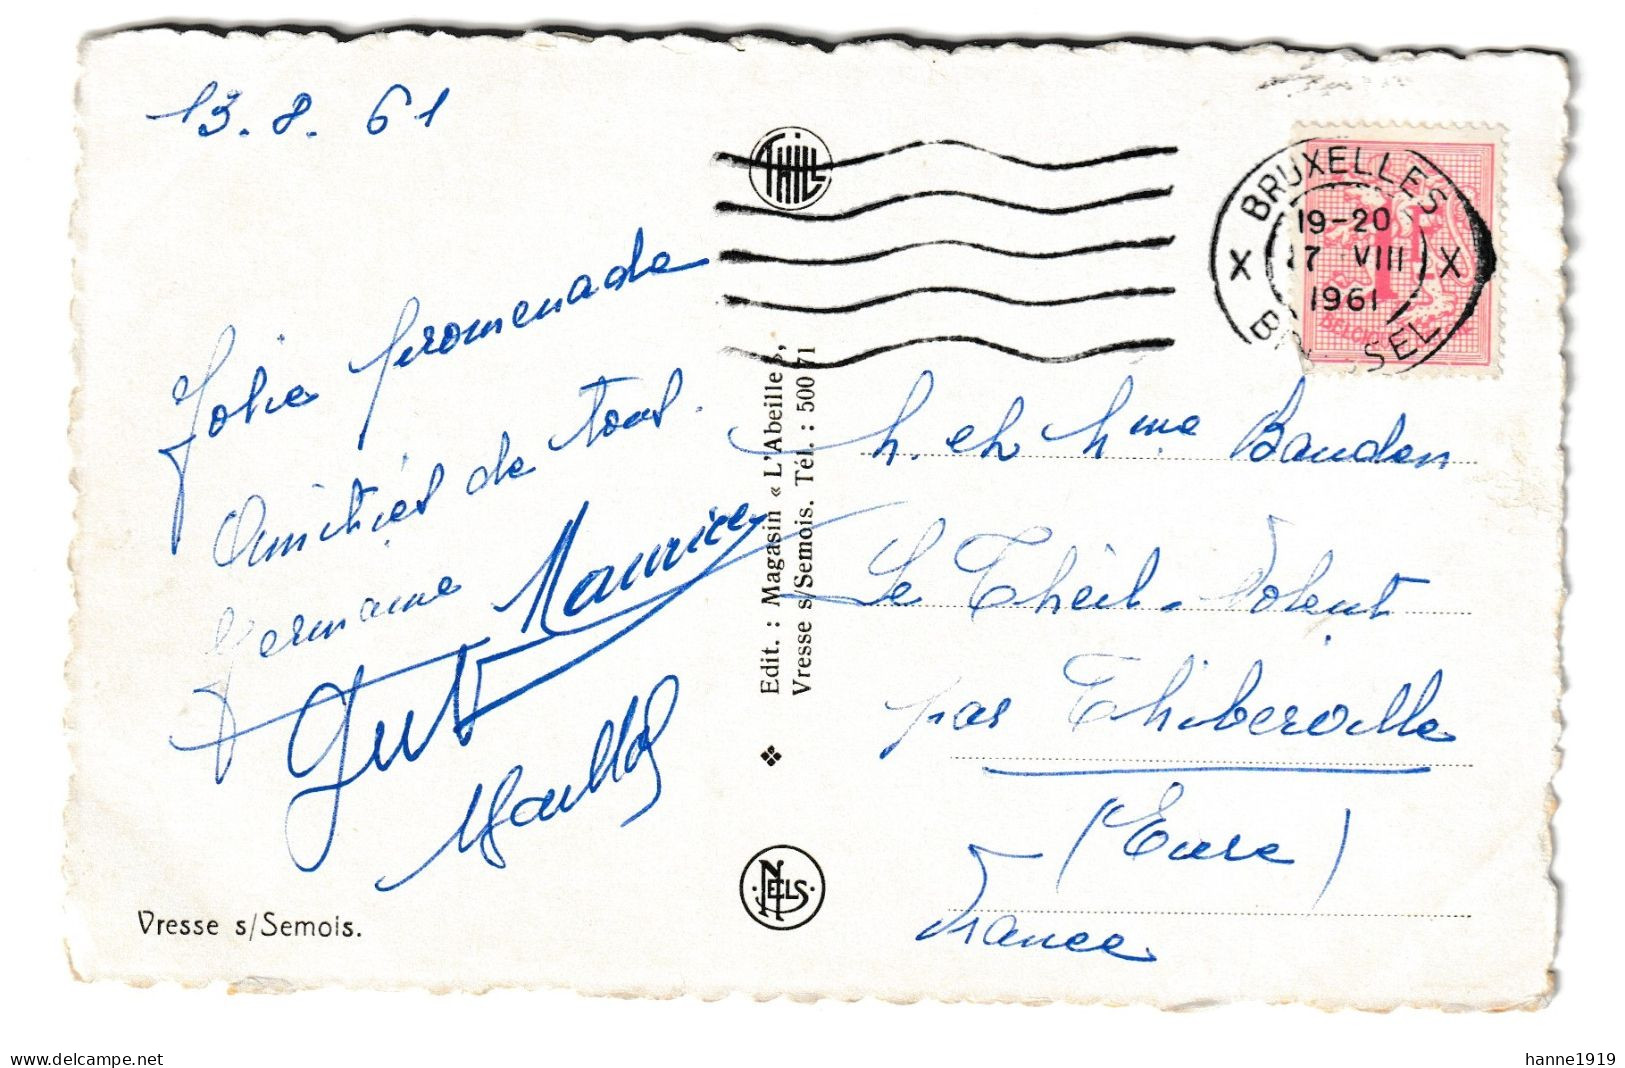 13.8.61
Jolie promenade
Amitiés de tous.
Germaine Maurice
THILL
Edit. : Magasin « L'Abeille »,
Vresse s/Semois. Tél. : 500 71
NELS
Vresse s/Semois.
BRUXELLES
19-20
17 VIII
1961
BRUSSEL
1F
M. et Mme Baudon
Le Theil-Nolent
par Thiberville
(Eure)
France
www.delcampe.net
hanne1919